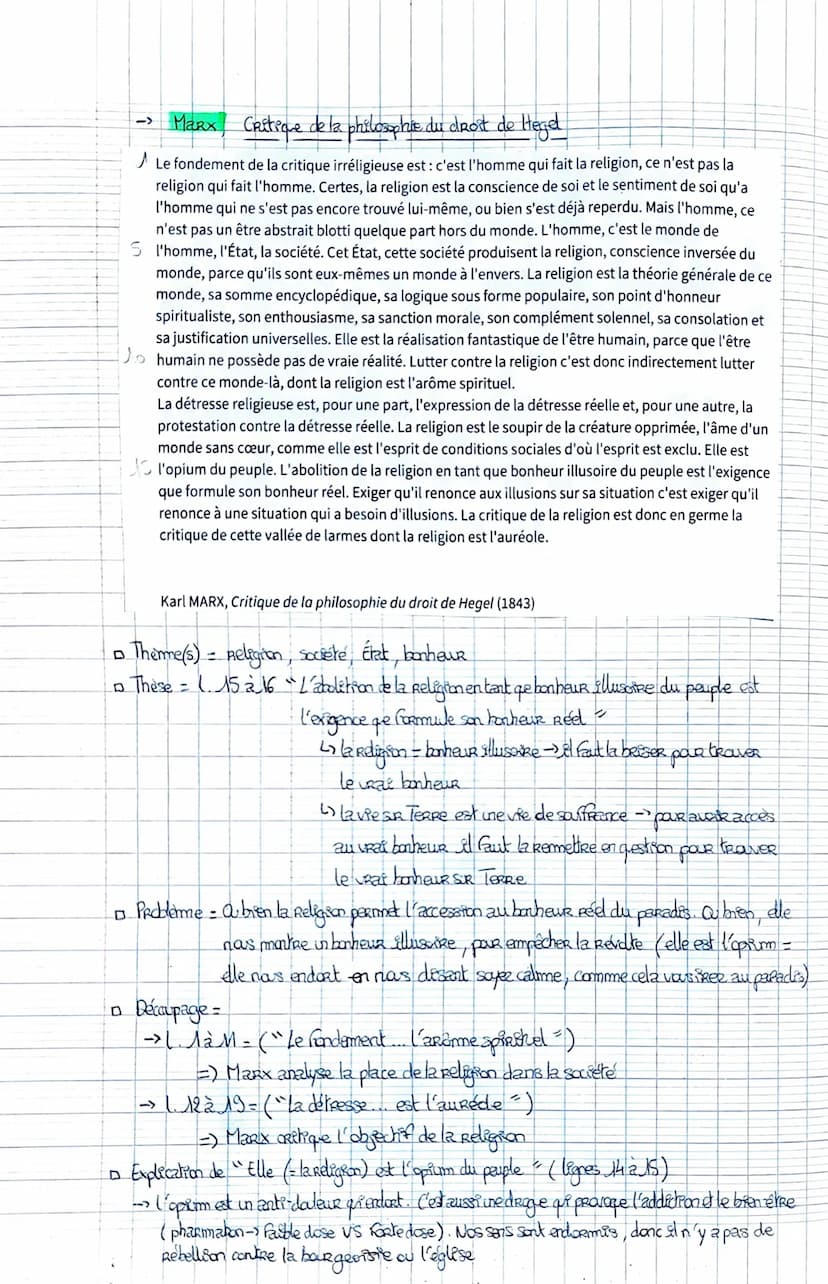 → Marx, Critique de la philosophie du droit de Hegel
1 Le fondement de la critique irréligieuse est : c'est l'homme qui fait la religion, ce n'est pas la
religion qui fait l'homme. Certes, la religion est la conscience de soi et le sentiment de soi qu'a
l'homme qui ne s'est pas encore trouvé lui-même, ou bien s'est déjà reperdu. Mais l'homme, ce
n'est pas un être abstrait blotti quelque part hors du monde. L'homme, c'est le monde de
5 l'homme, l'État, la société. Cet État, cette société produisent la religion, conscience inversée du
monde, parce qu'ils sont eux-mêmes un monde à l'envers. La religion est la théorie générale de ce
monde, sa somme encyclopédique, sa logique sous forme populaire, son point d'honneur
spiritualiste, son enthousiasme, sa sanction morale, son complément solennel, sa consolation et
sa justification universelles. Elle est la réalisation fantastique de l'être humain, parce que l'être
10 humain ne possède pas de vraie réalité. Lutter contre la religion c'est donc indirectement lutter
contre ce monde-là, dont la religion est l'arôme spirituel.
La détresse religieuse est, pour une part, l'expression de la détresse réelle et, pour une autre, la
protestation contre la détresse réelle. La religion est le soupir de la créature opprimée, l'âme d'un
monde sans cœur, comme elle est l'esprit de conditions sociales d'où l'esprit est exclu. Elle est
15 l'opium du peuple. L'abolition de la religion en tant que bonheur illusoire du peuple est l'exigence
que formule son bonheur réel. Exiger qu'il renonce aux illusions sur sa situation c'est exiger qu'il
renonce à une situation qui a besoin d'illusions. La critique de la religion est donc en germe la
critique de cette vallée de larmes dont la religion est l'auréole.
Karl MARX, Critique de la philosophie du droit de Hegel (1843)
□ Thème(s) = Religion, société, État, bonheur
□ Thèse = l. 15 à 16 "L'abolition de la religion en tant que bonheur illusoire du peuple est
l'exigence que formule son bonheur réel"
↳ la religion = bonheur illusoire → il faut la briser pour trouver
le vrai bonheur
↳ la vie sur Terre est une vie de souffrance → pour avoir accès
au vrai bonheur il faut la remettre en question pour trouver
le vrai bonheur sur Terre
□ Problème = Ou bien la religion permet l'accession au bonheur réel du paradis. Ou bien, elle
nous montre un bonheur illusoire, pour empêcher la révolte (elle est l'opium =
elle nous endort en nous disant soyez calme, comme cela vous irez au paradis)
□ Découpage =
→ l. 1 à 11 = ("Le fondement... l'arôme spirituel")
=> Marx analyse la place de la religion dans la société
→ l. 12 à 19 = ("la détresse... est l'auréole")
=> Marx critique l'objectif de la religion
□ Explication de "Elle (= la religion) est l'opium du peuple" (lignes 14 à 15)
→ l'opium est un anti-douleur qui endort. C'est aussi une drogue qui provoque l'addiction et le bien être
(pharmakon → faible dose VS forte dose). Nos sens sont endormis, donc il n'y a pas de
rébellion contre la bourgeoisie ou l'église